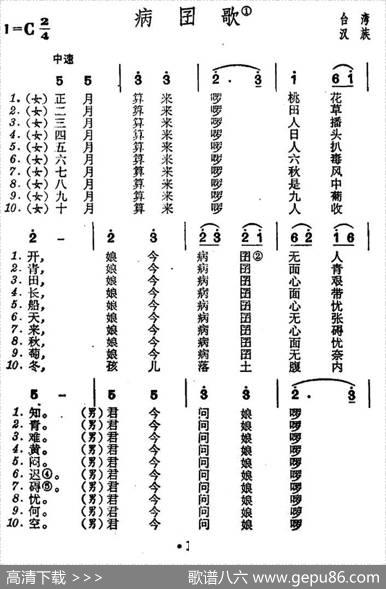 病 囝 歌①
台 湾
汉 族
1=C 2/4
中速
5 5 | 3 3 | 2· 3 | 1 6 1 |
1.（女）正 月 算 来 啰 桃 花
2.（女）二 月 算 来 啰 田 草
3.（女）三 月 算 来 啰 人 播
4.（女）四 月 算 来 啰 日 头
5.（女）五 月 算 来 啰 人 扒
6.（女）六 月 算 来 啰 六 毒
7.（女）七 月 算 来 啰 秋 风
8.（女）八 月 算 来 啰 是 中
9.（女）九 月 算 来 啰 九 葡
10.（女）十 月 算 来 啰 人 收
2 - | 2 3 | 2 3 2 1 | 6 2 1 6 |
1. 开， 娘 今 病 囝② 无 人
2. 青， 娘 今 病 囝 面 青
3. 田， 娘 今 病 囝 心 艰
4. 长， 娘 今 病 囝 面 带
5. 船， 娘 今 病 囝 心 忧
6. 天， 娘 今 病 囝 无 张
7. 来， 娘 今 病 囝 心 碍
8. 秋， 娘 今 病 囝 面 忧
9. 菊， 娘 今 病 囝 无 奈
10. 冬， 孩 儿 落 土 腹 内
5 - | 5 5 | 3 3 | 2· 3 |
1. 知。（男）君 今 问 娘 啰
2. 青。（男）君 今 问 娘 啰
3. 难。（男）君 今 问 娘 啰
4. 黄。（男）君 今 问 娘 啰
5. 闷。（男）君 今 问 娘 啰
6. 迟④。（男）君 今 问 娘 啰
7. 碍⑤。（男）君 今 问 娘 啰
8. 忧。（男）君 今 问 娘 啰
9. 何。（男）君 今 问 娘 啰
10. 空。（男）君 今 问 娘 啰
高清下载 >>> 歌谱八六 www.gepu86.com